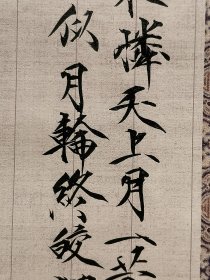 憐天上月一
似月輪終皎